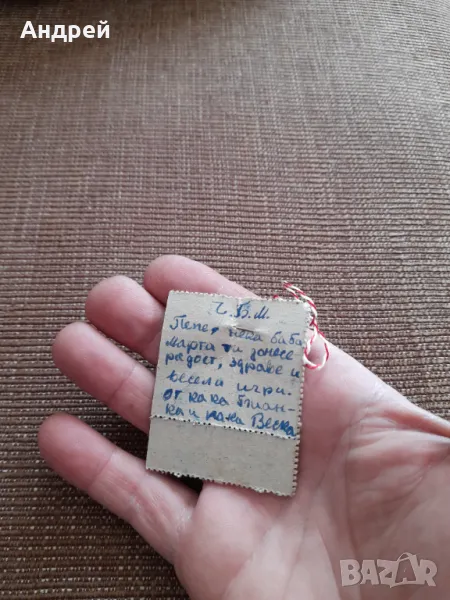 Андрей
Ч.Б.М.
Пепе, нека баба
марта ти донесе
радост, здраве и
весели игри.
от кака Биан-
ка и кака Веска
BAZAR